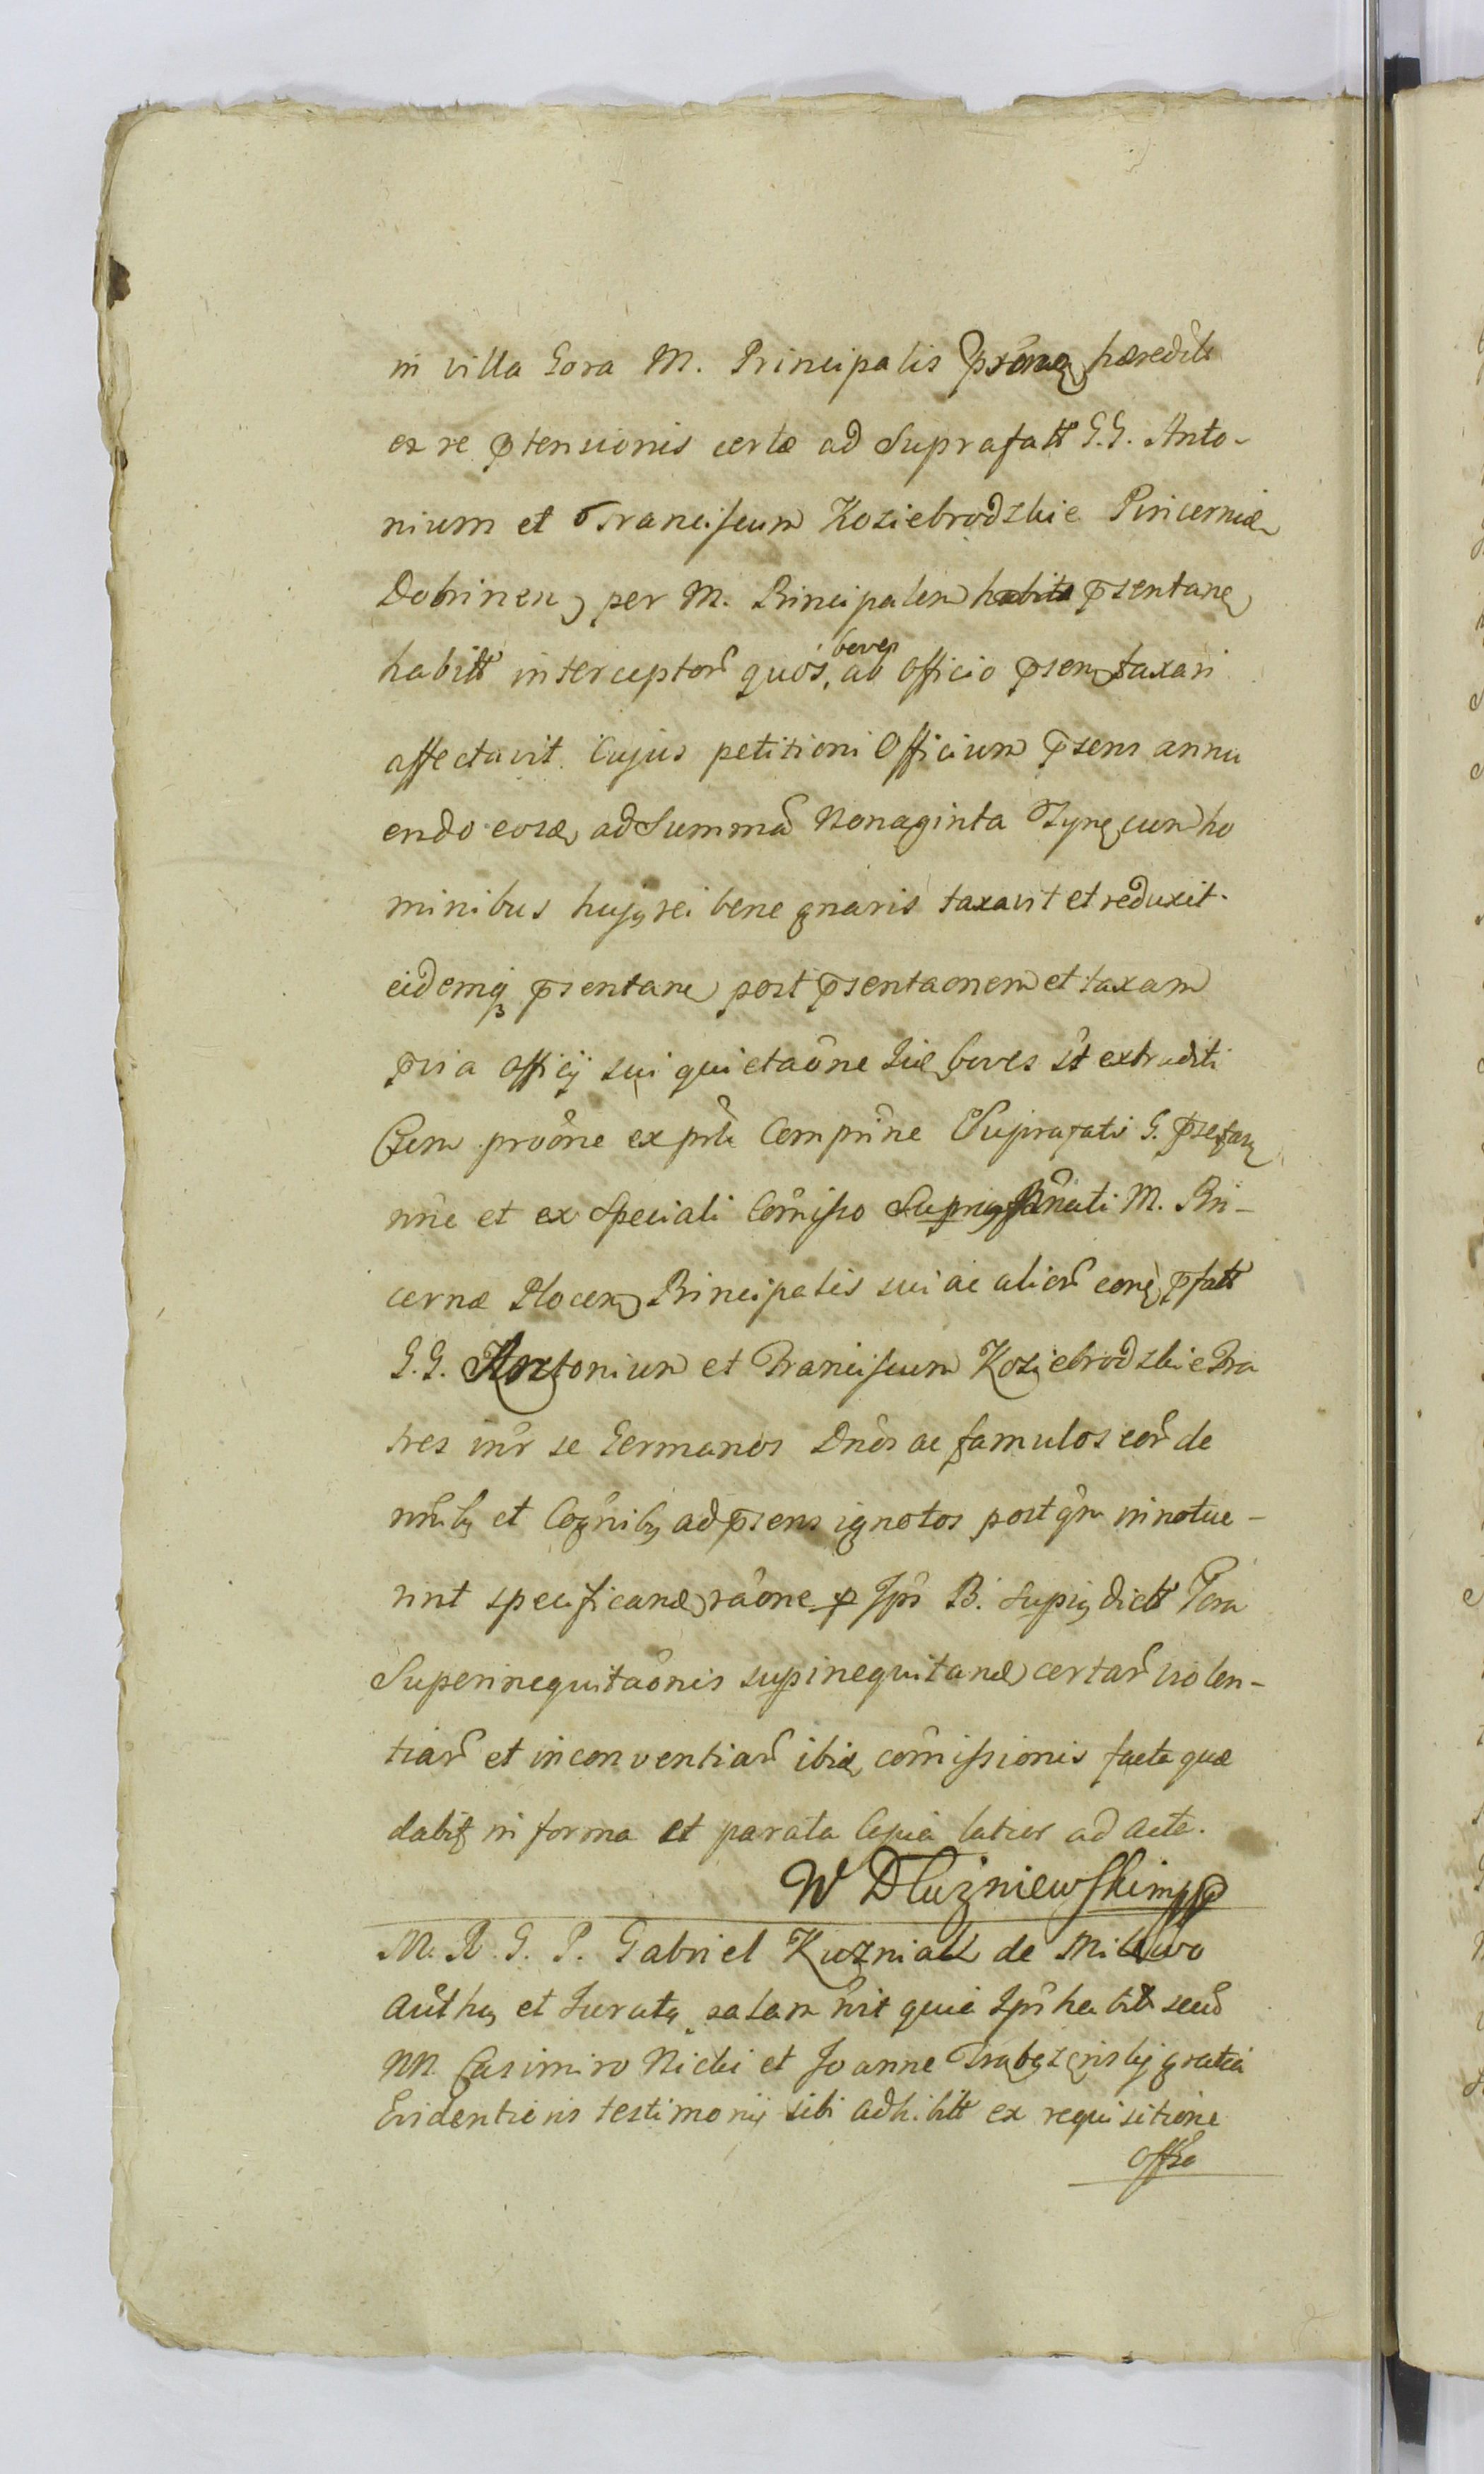 in villa Gora M. Principalis hæredit
ex re ptensionis certæ ad Suprafatt G.G. Anto-
nium et Franciscum Koziebrodzkie Pincernid
Dobrinen per M. Principalem habita psentane
habitt interceptor quos, boves ab Officio psen taxari
affectavit. Cujus petitioni Officium psens annu
endo eosd ad Summa Nonaginta Tynf cum ho
minibus hujq rei bene gnaris taxavit et reduxit.
eidemq psentane post psentaonem et taxam
pvia Officij sui quietaone boves st extraditi
proone ex prte Comprine Suprafati G. psetan
nne et ex Speciali Comisso M. Pin-
cernæ Plocen Principalis sui ac alior pfatt
G.G. Antonium et Franciscum Koziebrodzkie Fra
tres intr se Germanos Dnos ac famulos eor de
nnibq et Cognibq ad psens ignotos post qm innotue-
rint specificand raone Ips B. Suprq dictt Gora
Superinequitaonis supinequitand certar violen-
tiar et inconventiar ibid comissionis facta quæ
dabit in forma et parata Copia latior ad acta.
W Dłużniewski mpp
M. R. G. P. Gabriel Kuzniak de Milewo
Authq et Juratq palam rnt quia Ips habitt secu
NN. Casimiro Nicki et Joanne gratia
Evidentioris testimonij sibi adhibitt ex requisitione
Offo